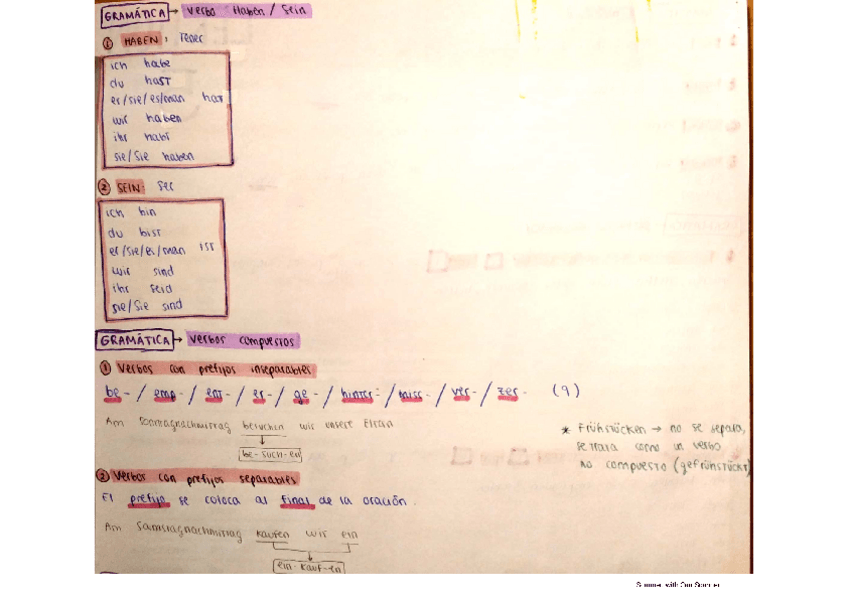 GRAMÁTICA → verbo Haben / Sein
① HABEN: Tener
ich habe
du hast
er/sie/es/man hat
wir haben
ihr habt
sie/Sie haben
② SEIN: Ser
ich bin
du bist
er/sie/es/man ist
wir sind
ihr seid
sie/Sie sind
GRAMÁTICA → verbos compuestos
① Verbos con prefijos inseparables
be- / emp- / ent- / er- / ge- / hinter- / miss- / ver- / zer- (9)
Am Samstagnachmittag besuchen wir unsere Eltern
be-such-en
* Frühstücken → no se separa,
se trata como un verbo
no compuesto (gefrühstückt)
② Verbos con prefijos separables
El prefijo se coloca al final de la oración.
Am Samstagnachmittag kaufen wir ein
ein-kauf-en